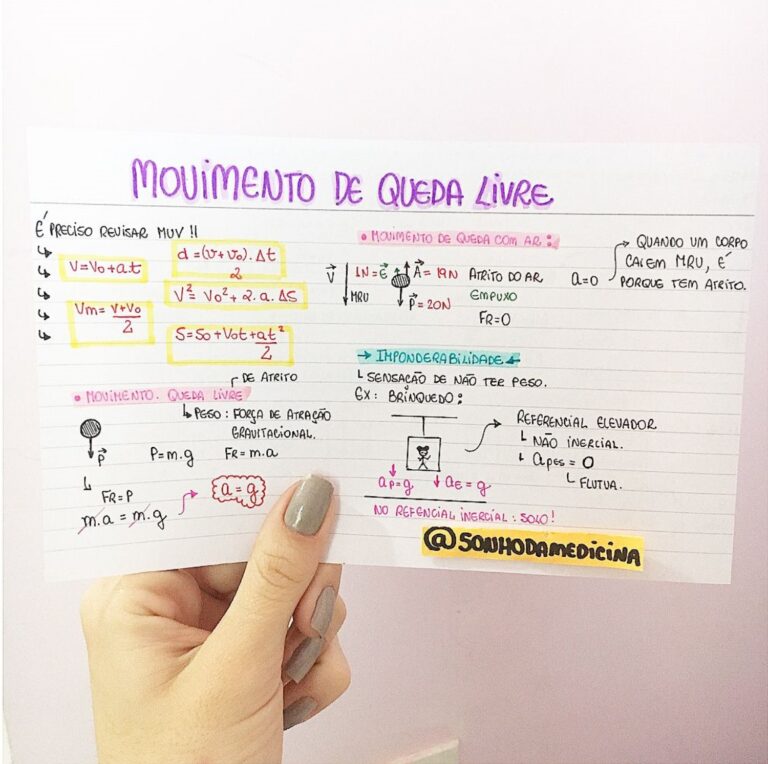 MOVIMENTO DE QUEDA LIVRE
É PRECISO REVISAR MUV !!
↳ V=V₀+at
↳ Vm=V+V₀/2
d=(V+V₀).Δt/2
V²=V₀²+2.a.ΔS
S=S₀+V₀t+at²/2
• MOVIMENTO. QUEDA LIVRE
DE ATRITO
↳ PESO: FORÇA DE ATRAÇÃO
GRAVITACIONAL.
P
P=m.g FR=m.a
↳ FR=P
m.a=m.g → a=g
• MOVIMENTO DE QUEDA COM AR:
V 1N=E A=19N ATRITO DO AR
MRU EMPUXO
P=20N FR=0
a=0
QUANDO UM CORPO
CAI EM MRU, É
PORQUE TEM ATRITO.
→ IMPONDERABILIDADE ←
↳ SENSAÇÃO DE NÃO TER PESO.
EX: BRINQUEDO:
REFERENCIAL ELEVADOR
↳ NÃO INERCIAL.
↳ aPES=0
↳ FLUTUA.
aP=g aE=g
NO REFENCIAL INERCIAL: SOLO!
@SONHODAMEDICINA